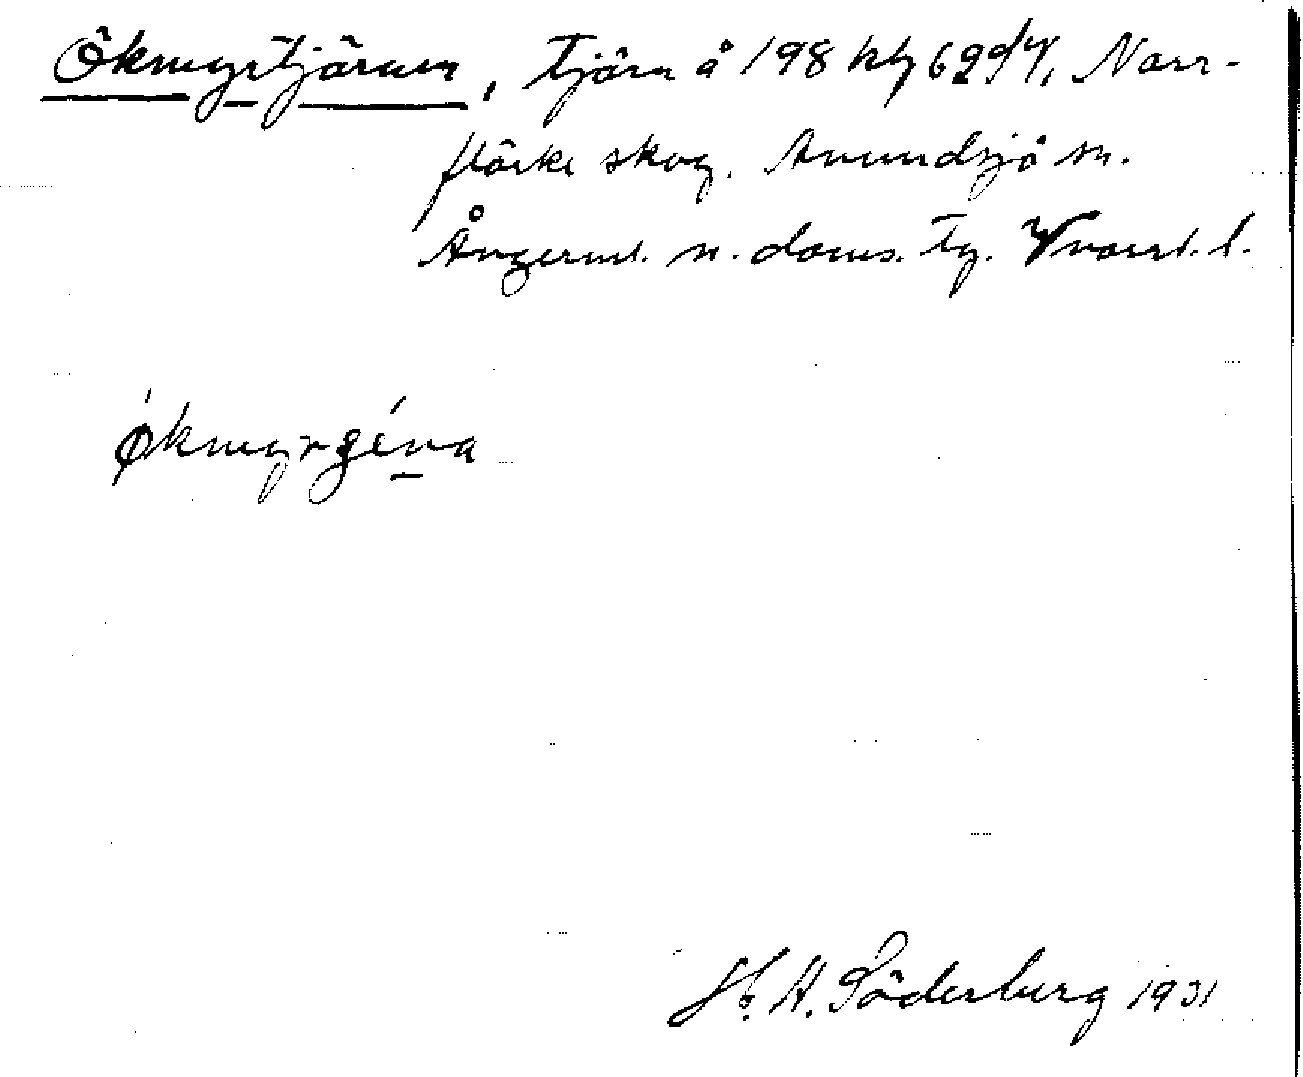 Ökmyrtjärnen, Tjärn å 198 kbl 62 d4, Norr-
flärke skog. Anundsjö sn.
Ångerml. n. doms. Tg. Vnorrl. l.
ǿkmyrǥéna
H. A. Söderberg 1931